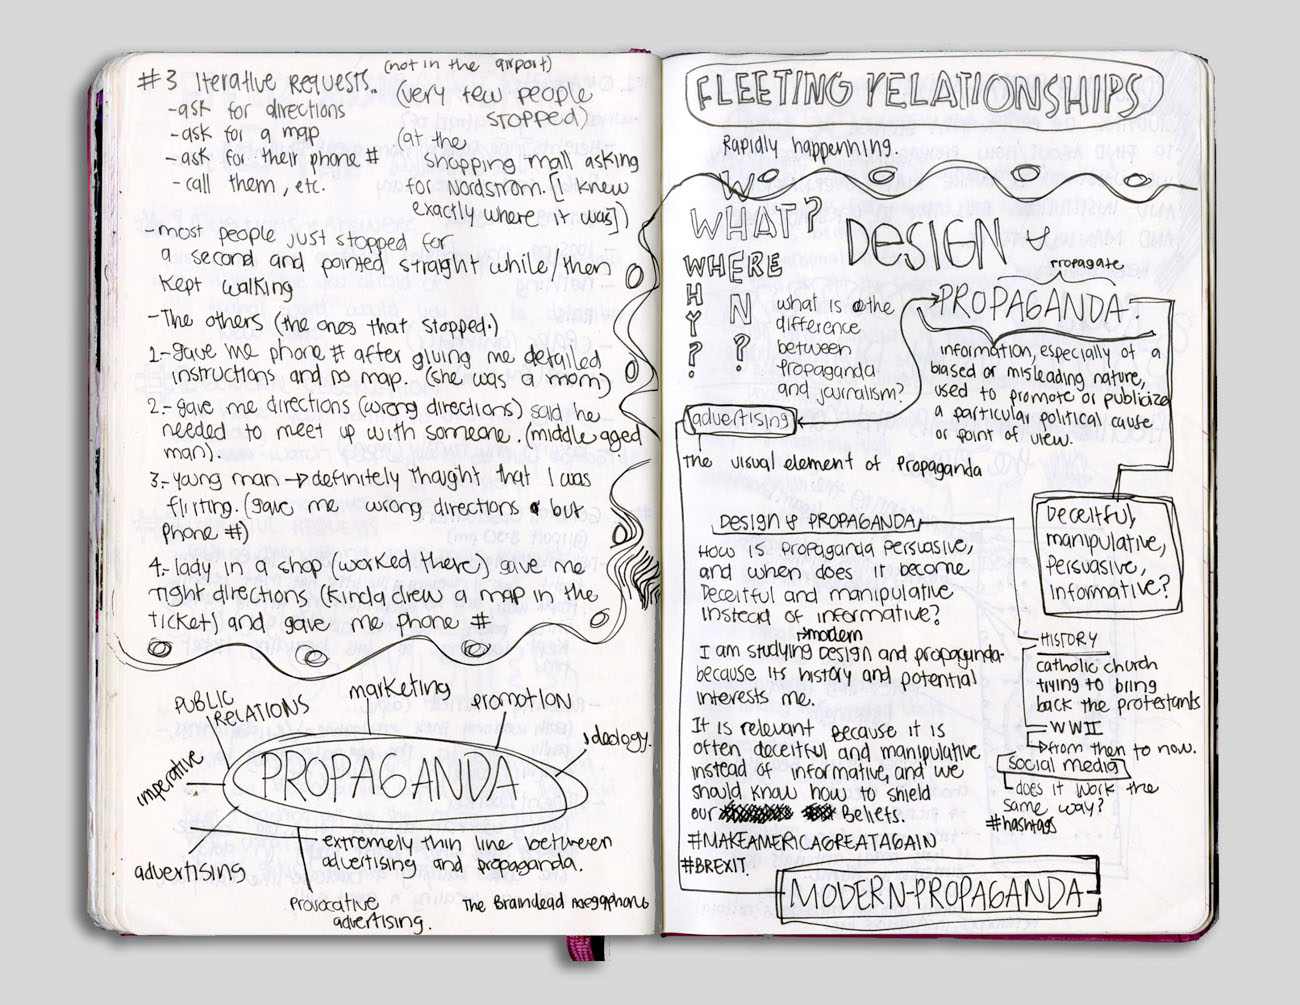 (not in the airport)
#3 Iterative requests.
-ask for directions
-ask for a map
-ask for their phone #
-call them, etc.
(very few people
stopped)
(at the
shopping mall asking
for Nordstrom. [I knew
exactly where it was])
-most people just stopped for
a second and pointed straight while/then
kept walking
-The others (the ones that stopped.)
1.-gave me phone # after giving me detailed
instructions and no map. (she was a mom)
2.-gave me directions (wrong directions) said he
needed to meet up with someone. (middle aged
man).
3.-young man → definitely thought that I was
flirting. (gave me wrong directions but
phone #)
4.-lady in a shop (worked there) gave me
right directions (kinda drew a map in the
ticket) and gave me phone #
PUBLIC
RELATIONS
marketing
promotion
ideology.
imperative
PROPAGANDA
advertising
extremely thin line between
advertising and propaganda.
Provocative
advertising.
The Braindead megaphone
FLEETING RELATIONSHIPS
Rapidly happenning.
W
WHAT?
WHERE
H N
Y ?
?
DESIGN &
propagate
PROPAGANDA
what is the
difference
between
propaganda
and journalism?
information, especially of a
biased or misleading nature,
used to promote or publicize
a particular political cause
or point of view.
advertising
The visual element of Propaganda
Deceitful,
manipulative,
persuasive,
informative?
DESIGN & PROPAGANDA
How is propaganda persuasive,
and when does it become
Deceitful and manipulative
instead of informative?
→modern
I am studying Design and propaganda-
because its history and potential
interests me.
It is relevant because it is
often deceitful and manipulative
instead of informative, and we
should know how to shield
our Beliefs.
#MAKEAMERICAGREATAGAIN
#BREXIT.
HISTORY
catholic church
trying to bring
back the protestants
WWII
→from then to now.
social media
does it work the
same way?
#hashtags
MODERN-PROPAGANDA